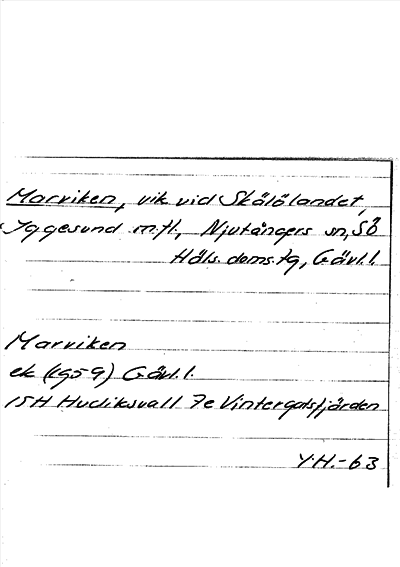 Marviken, vik vid Skålölandet,
Iggesund m.fl., Njutångers sn, SÖ
Häls. doms.tg, Gävl.l.
Marviken
ek (1959) Gävl.l.
15H Hudiksvall 7e Vintergatsfjärden
Y.H.-63